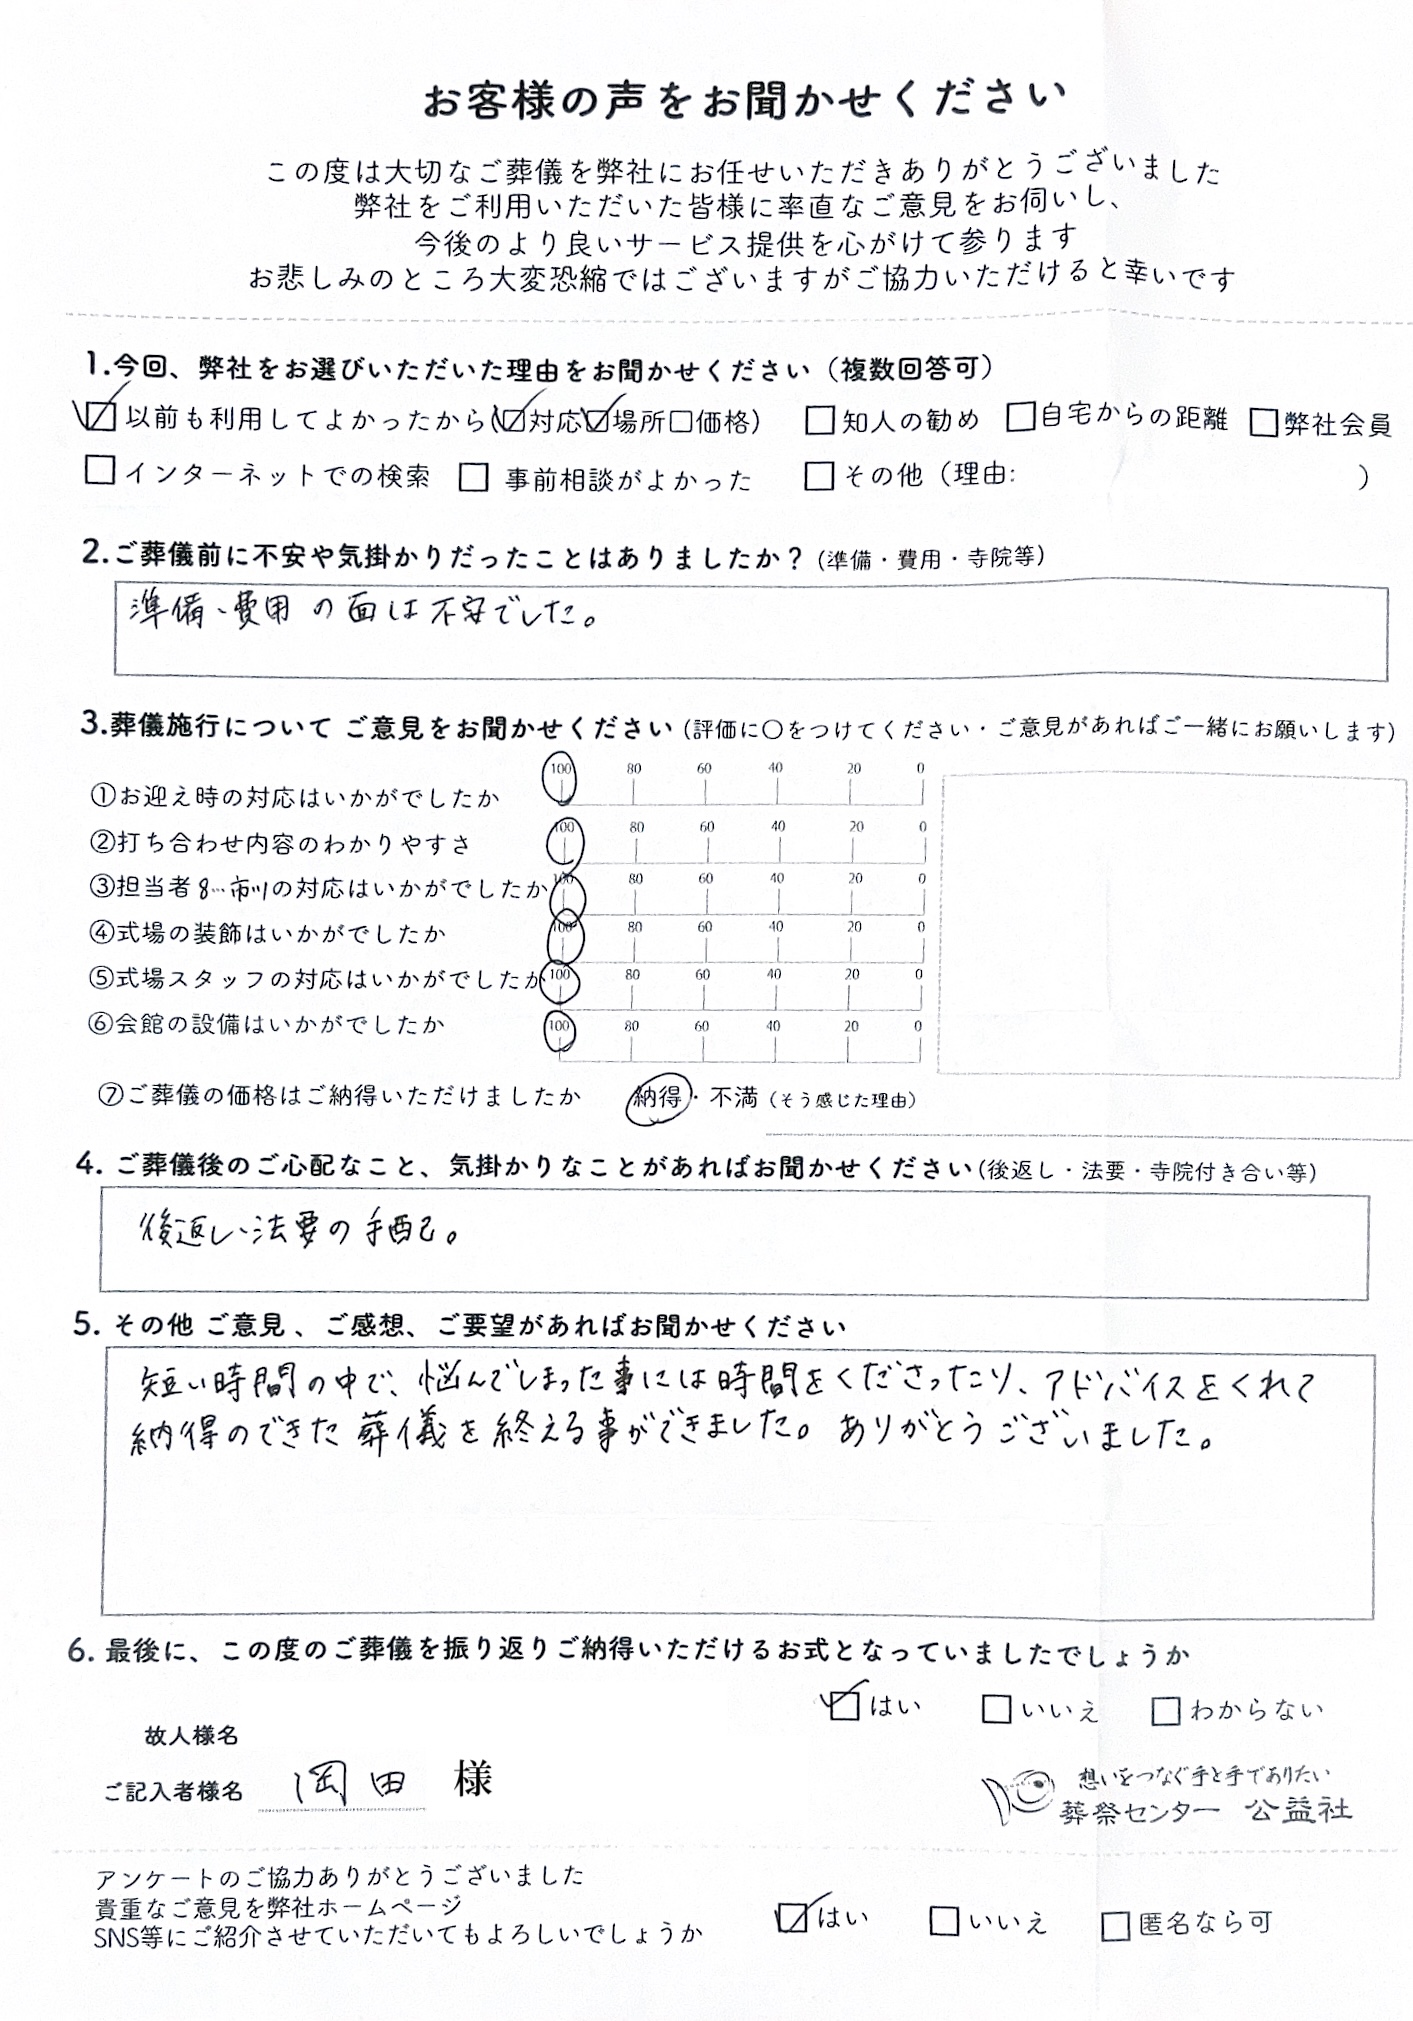 お客様の声をお聞かせください
この度は大切なご葬儀を弊社にお任せいただきありがとうございました
弊社をご利用いただいた皆様に率直なご意見をお伺いし、
今後のより良いサービス提供を心がけて参ります
お悲しみのところ大変恐縮ではございますがご協力いただけると幸いです
1.今回、弊社をお選びいただいた理由をお聞かせください（複数回答可）
☑以前も利用してよかったから(☑対応☑場所□価格) □知人の勧め □自宅からの距離 □弊社会員
□インターネットでの検索 □事前相談がよかった □その他（理由: ）
2.ご葬儀前に不安や気掛かりだったことはありましたか？（準備・費用・寺院等）
準備、費用の面は不安でした。
3.葬儀施行について ご意見をお聞かせください（評価に〇をつけてください・ご意見があればご一緒にお願いします）
①お迎え時の対応はいかがでしたか 100 80 60 40 20 0
②打ち合わせ内容のわかりやすさ 100 80 60 40 20 0
③担当者 市川の対応はいかがでしたか 100 80 60 40 20 0
④式場の装飾はいかがでしたか 100 80 60 40 20 0
⑤式場スタッフの対応はいかがでしたか 100 80 60 40 20 0
⑥会館の設備はいかがでしたか 100 80 60 40 20 0
⑦ご葬儀の価格はご納得いただけましたか 納得・不満（そう感じた理由）
4. ご葬儀後のご心配なこと、気掛かりなことがあればお聞かせください（後返し・法要・寺院付き合い等）
後返し、法要の手配。
5. その他 ご意見、ご感想、ご要望があればお聞かせください
短い時間の中で、悩んでしまった事には時間をくださったり、アドバイスをくれて
納得のできた葬儀を終える事ができました。ありがとうございました。
6. 最後に、この度のご葬儀を振り返りご納得いただけるお式となっていましたでしょうか
☑はい □いいえ □わからない
故人様名
ご記入者様名 岡田 様
想いをつなぐ手と手でありたい
葬祭センター 公益社
アンケートのご協力ありがとうございました
貴重なご意見を弊社ホームページ
SNS等にご紹介させていただいてもよろしいでしょうか ☑はい □いいえ □匿名なら可